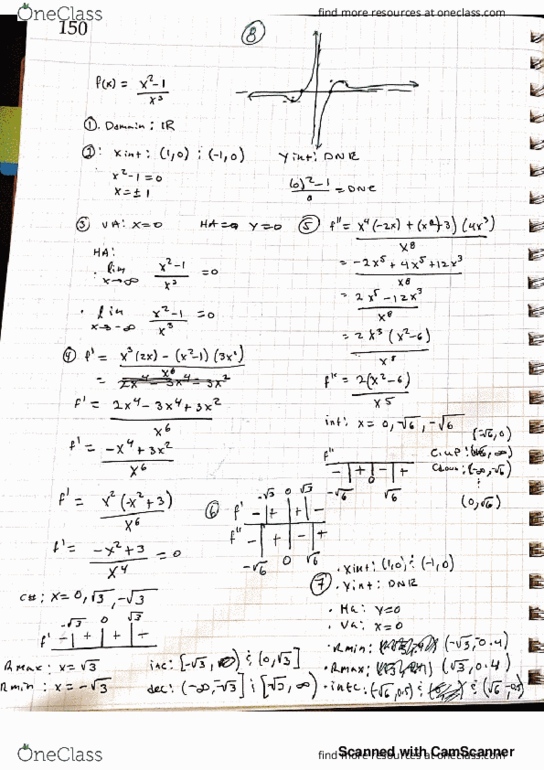 OneClass
find more resources at oneclass.com
150
8
f(x) = x²-1 / x³
① Domain: IR
②: xint: (1,0) ; (-1,0)
Yint: DNE
x²-1=0
x=±1
(0)²-1 / 0 = DNE
③ VA: x=0 HA= y=0
HA:
lim x→∞ x²-1 / x³ = 0
lim x→-∞ x²-1 / x³ = 0
④ f' = x³(2x) - (x²-1)(3x²) / x⁶
f' = 2x⁴-3x⁴+3x² / x⁶
f' = -x⁴+3x² / x⁶
f' = x²(-x²+3) / x⁶
f' = -x²+3 / x⁴ = 0
C#: x=0, √3, -√3
-√3 0 √3
f' - + + -
Rmax: x=√3
Rmin: x=-√3
inc: [-√3, 0) ; (0,√3]
dec: (-∞,-√3] ; [√3, ∞)
⑤ f" = x⁴(-2x) + (x²+3)(4x³) / x⁸
= -2x⁵+4x⁵+12x³ / x⁸
= 2x⁵-12x³ / x⁸
= 2x³(x²-6) / x⁸
f" = 2(x²-6) / x⁵
int: x = 0, √6, -√6
(-√6,0)
C.up: (√6, ∞)
Cdown: (-∞, -√6)
;
(0,√6)
f"
- + - +
-√6 0 √6
⑥ -√3 0 √3
f' - + + -
f" - + - +
-√6 0 √6
⑦ • xint: (1,0) ; (-1,0)
• Yint: DNE
• Ha: y=0
• Va: x=0
• Rmin: (-√3,-0.4)
• Rmax: (√3,0.4)
Scanned with CamScanner
OneClass
find more resources at oneclass.com